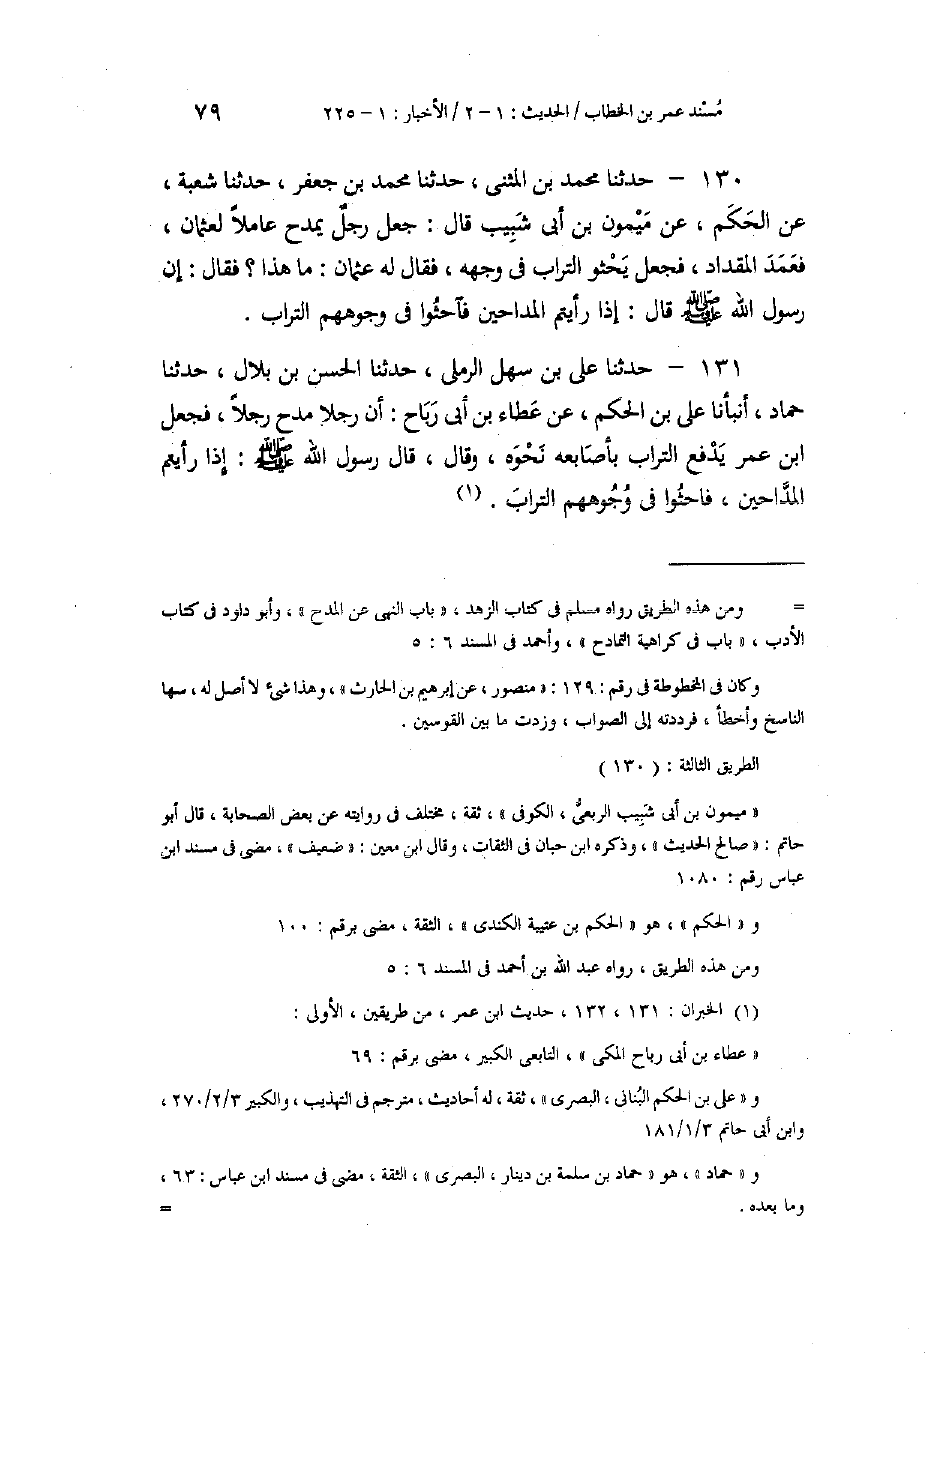 مُسْند عمر بن الخطاب / الحديث : ١ - ٢ / الأخبار : ١ - ٢٢٥ ٧٩
١٣٠ - حدثنا محمد بن المثنى ، حدثنا محمد بن جعفر ، حدثنا شعبة ،
عن الحَكَم ، عن مَيْمون بن أبى شَبِيب قال : جعل رجلٌ يمدح عاملاً لعثمان ،
فعَمَدَ المقداد ، فجعل يَحْثو التراب فى وجهه ، فقال له عثمان : ما هذا ؟ فقال : إن
رسول الله ﷺ قال : إذا رأيتم المداحين فآحثُوا فى وجوههم التراب .
١٣١ - حدثنا على بن سهل الرملى ، حدثنا الحسن بن بلال ، حدثنا
حماد ، أنبأنا على بن الحكم ، عن عَطاء بن أبى رَبَاح : أن رجلا مدح رجلاً ، فجعل
ابن عمر يَدْفع التراب بأصَابعه نَحْوَه ، وقال ، قال رسول الله ﷺ : إذا رأيتم
المدَّاحين ، فاحثُوا فى وُجُوههم الترابَ . (١)
= ومن هذه الطريق رواه مسلم فى كتاب الزهد ، « باب النهى عن المدح » ، وأبو داود فى كتاب
الأدب ، « باب فى كراهية التمادح » ، وأحمد فى المسند ٦ : ٥
وكان فى المخطوطة فى رقم : ١٢٩ : « منصور ، عن إبرهيم بن الحارث » ، وهذا شئ لا أصل له ، سها
الناسخ وأخطأ ، فرددته إلى الصواب ، وزدت ما بين القوسين .
الطريق الثالثة : ( ١٣٠ )
« ميمون بن أبى شَبَيب الربعىُّ ، الكوفى » ، ثقة ، مختلف فى روايته عن بعض الصحابة ، قال أبو
حاتم : « صالح الحديث » ، وذكره ابن حبان فى الثقات ، وقال ابن معين : « ضعيف » ، مضى فى مسند ابن
عباس رقم : ١٠٨٠
و « الحكم » ، هو « الحكم بن عتيبة الكندى » ، الثقة ، مضى برقم : ١٠٠
ومن هذه الطريق ، رواه عبد الله بن أحمد فى المسند ٦ : ٥
(١) الخبران : ١٣١ ، ١٣٢ ، حديث ابن عمر ، من طريقين ، الأولى :
« عطاء بن أبى رباح المكى » ، التابعى الكبير ، مضى برقم : ٦٩
و « على بن الحكم البُنانى ، البصرى » ، ثقة ، له أحاديث ، مترجم فى التهذيب ، والكبير ٢٧٠/٢/٣ ،
وابن أبى حاتم ١٨١/١/٣
و « حماد » ، هو « حماد بن سلمة بن دينار ، البصرى » ، الثقة ، مضى فى مسند ابن عباس : ٦٣ ،
وما بعده . =